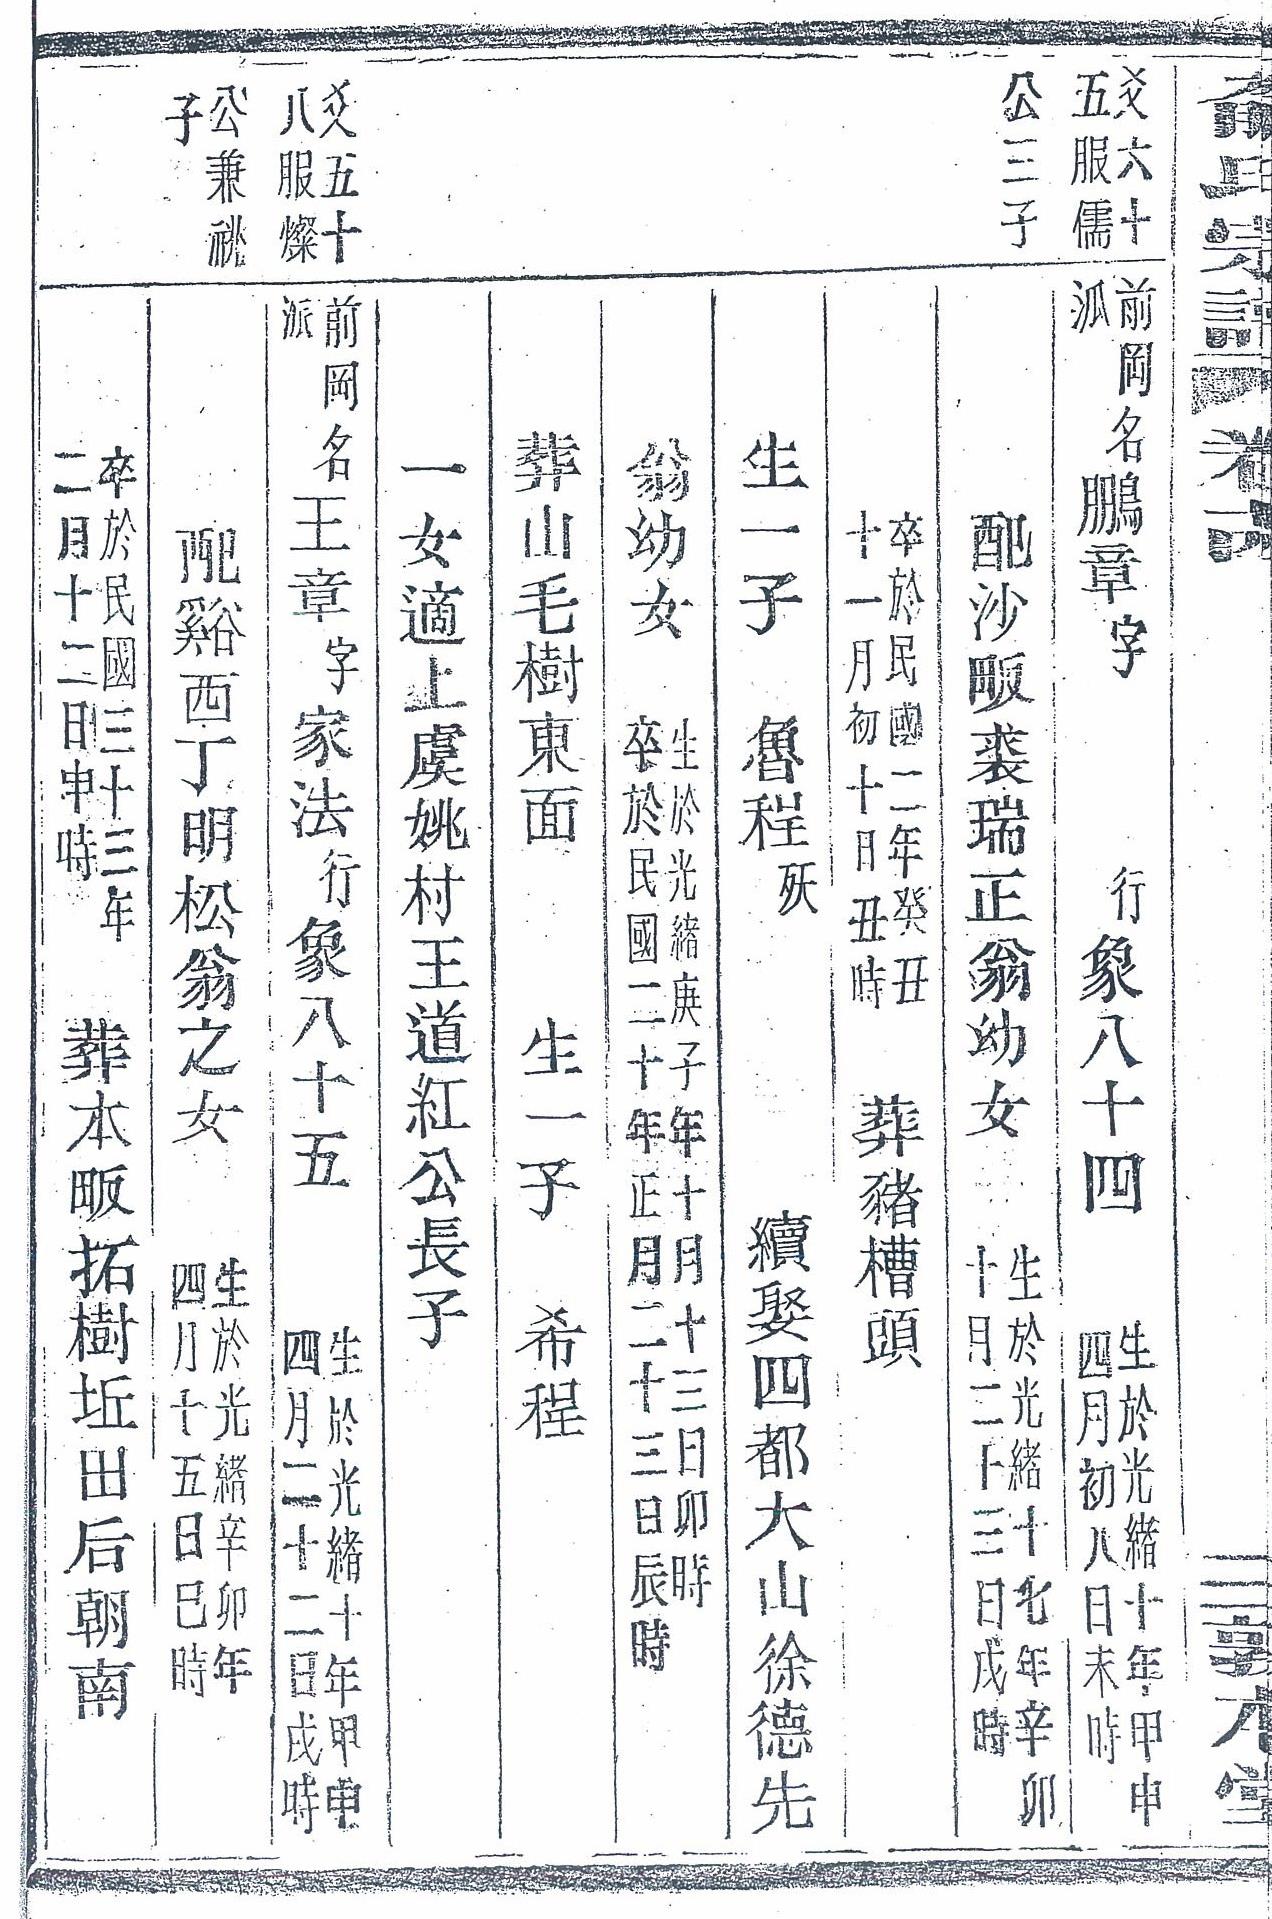 卷六
敦本堂
爻六十
五服儒
公三子
前岡名鵬章字 行象八十四 生於光緒十年甲申
派 四月初八日未時
配沙畈裘瑞正翁幼女 生於光緒十七年辛卯
十月二十三日戌時
卒於民國二年癸丑
十一月初十日丑時 葬豬槽頭
生一子 魯程殀 續娶四都大山徐德先
翁幼女 生於光緒庚子年十月十三日卯時
卒於民國二十年正月二十三日辰時
葬山毛樹東面 生一子 希程
一女適上虞姚村王道紅公長子
爻五十
八服燦
公兼祧
子
前岡名王章字家法行象八十五 生於光緒十年甲申
派 四月二十二日戌時
配谿西丁明松翁之女 生於光緒辛卯年
四月十五日巳時
卒於民國三十三年
二月十二日申時 葬本畈拓樹坵田后朝南